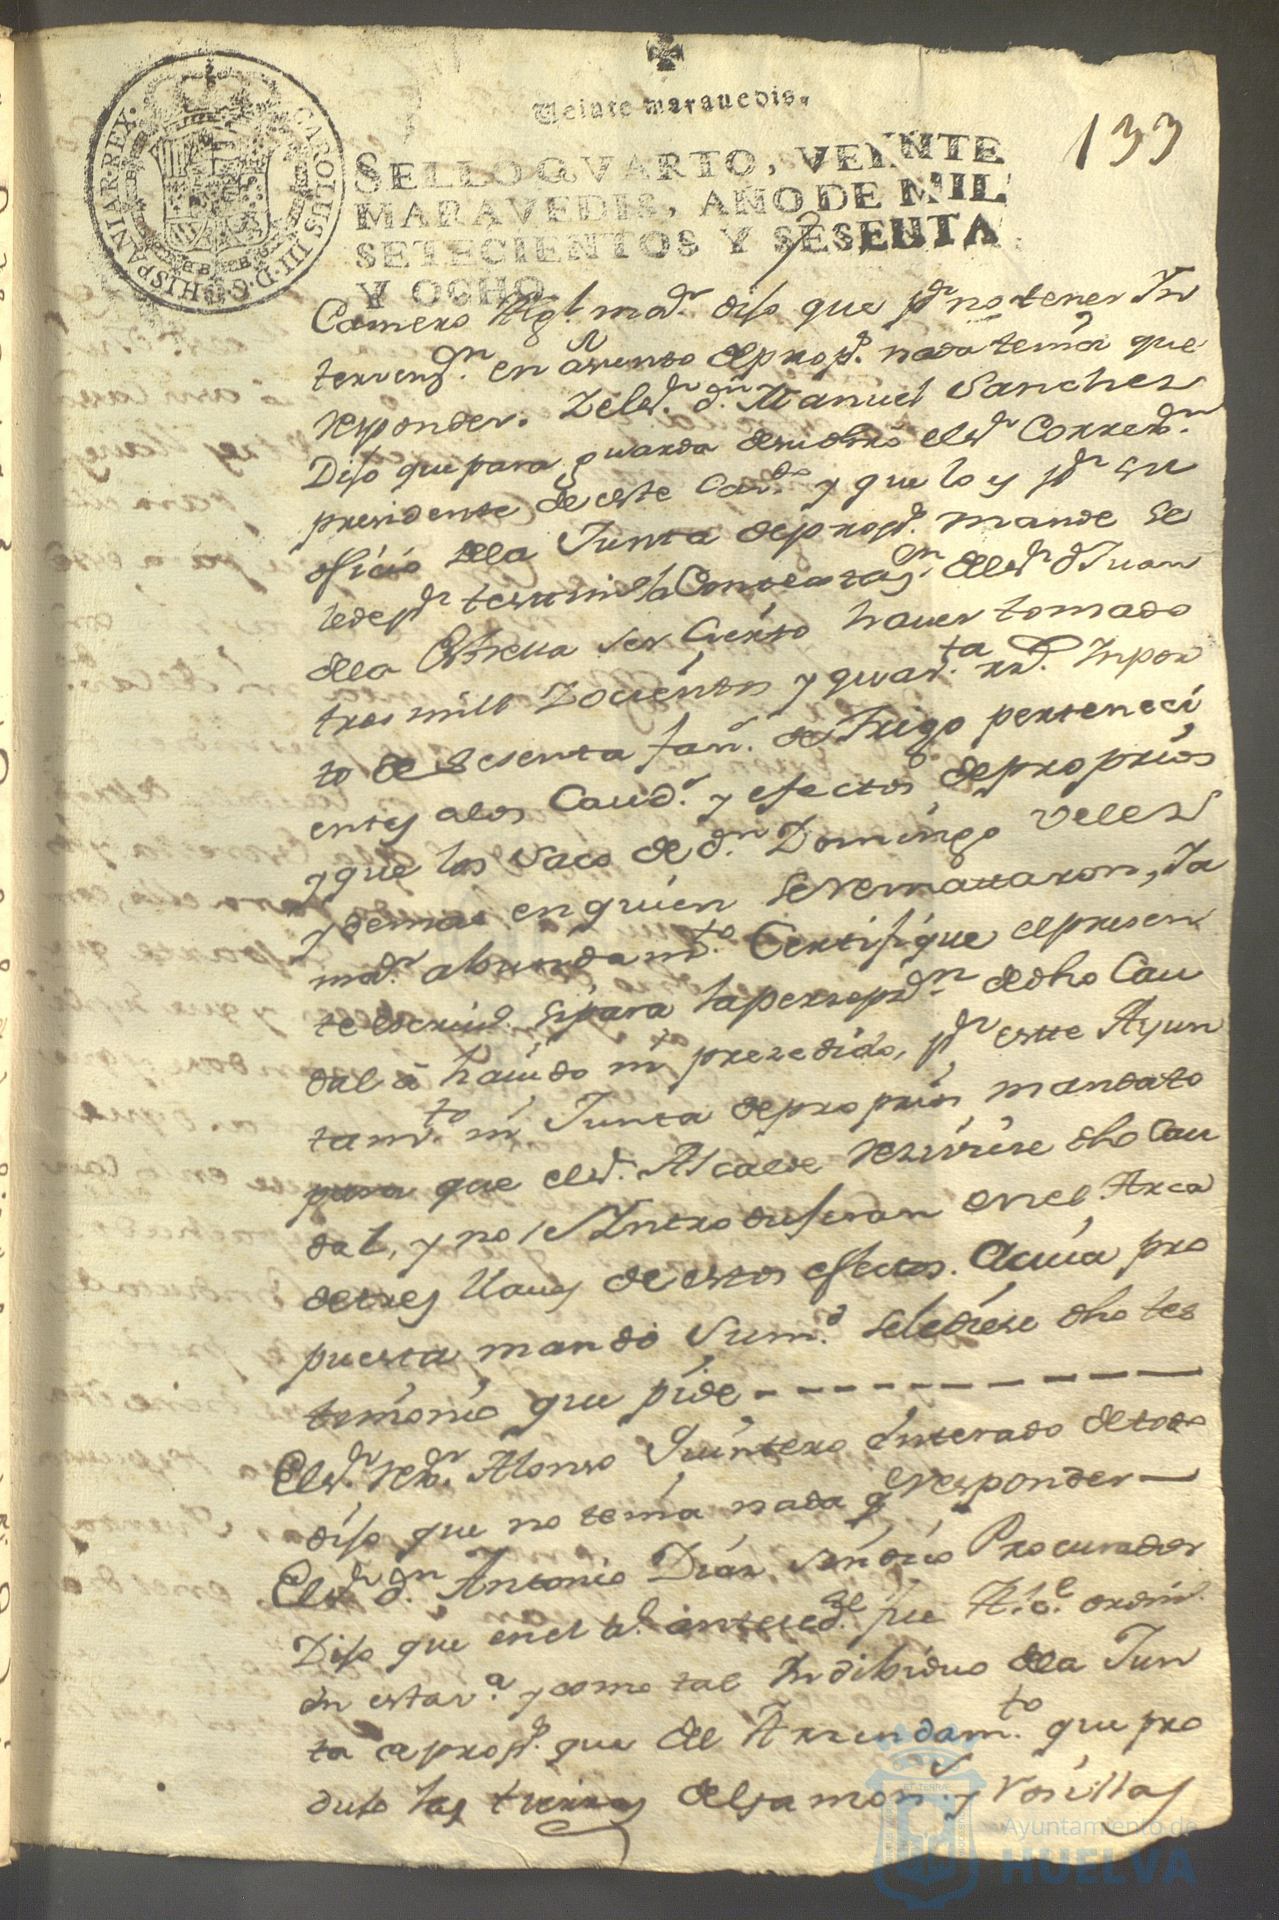 Veinte maravedis.
133
SELLO QVARTO, VEINTE
MARAVEDIS, AÑO DE MIL
SETECIENTOS Y SESENTA
Y OCHO
CAROLUS III D.G. HISPANIAR REX
Camero Alg.l ma.r dijo que p.r no tener In
terven.n en asunto de prop.s nada tenia que
responder. Y el s.r d.n Manuel Sanchez
Dijo que para guarda de su dro el s.r Corre.r
presidente de este Cav.do y que lo es p.r su
oficio de la Junta de prop.s mande se
le de p.r testim.o la Contesta.n del s.r d.n Juan
de la Estrella ser Cierto haver tomado
tres mill Zocientos y quar.ta rr.s Impor
to de Sesenta fan.s de Trigo perteneci
entes a los Caud.s y efectos de proprios
y que los saco de d.n Domingo Velez
y demas en quien se remattaron, Ya
ma.r abundam.to Certifique el presen
te escriv.o si para la percep.n de dho Cau
dal à havido ni prezedido, p.r este Ayun
tam.to ni Junta de proprios mandato
para que el s.r Alcalde reziviese dho Cau
dal, y no se Introdujeran en el Arca
de tres llaves de estos efectos. A cuia pro
puesta mandó su m.d se le diese dho tes
timonio que pide
El s.r rex.r Alonso Quintero enterado de todo
dijo que no tenia nada q responder
El s.r d.n Antonio Diaz sindico Procurador
Dijo que en el a.o anteced.te fue Alc.e ordin.o
en esta v.a y como tal Indibiduo de la Jun
ta de prop.s que del Arrendam.to que pro
dujo las tierras de Jamon y Rosillas
Ayuntamiento de
HUELVA